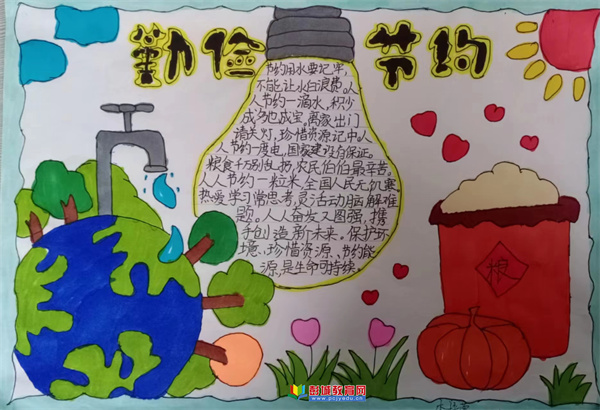 勤俭节约
节约用水要记牢,
不能让水白浪费。人
人节约一滴水,积少
成多也成宝,离家出门
请关灯,珍惜资源记中人
人节约一度电,国家建设有保证。
粮食千万别浪扬,农民伯伯最辛苦。
人人节约一粒米,全国人民无饥寒。
热爱学习常思考,灵活动脑解难
题。人人奋发又图强,携
手创造新未来。保护环
境、珍惜资源、节约能
源,是生命可持续。
粮
彭城教育网
www.pcjyedu.cn